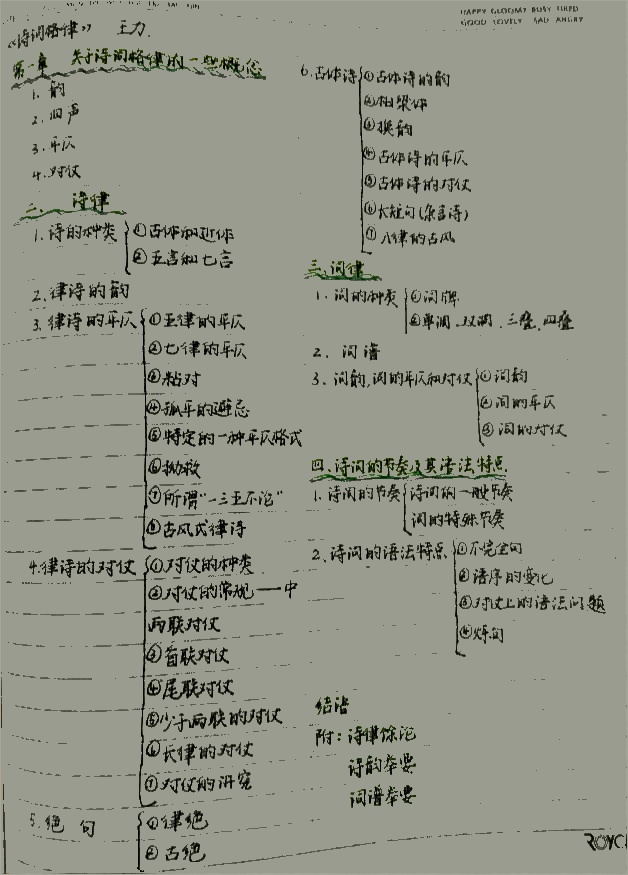 HAPPY GLOOMY BUSY TIRED
GOOD LOVELY SAD ANGRY
《诗词格律》 王力
第一章 关于诗词格律的一些概念
1. 韵
2. 四声
3. 平仄
4. 对仗
二、诗律
1. 诗的种类
①古体和近体
②五言和七言
2. 律诗的韵
3. 律诗的平仄
①五律的平仄
②七律的平仄
③粘对
④孤平的避忌
⑤特定的一种平仄格式
⑥拗救
⑦所谓“一三五不论”
⑧古风式律诗
4. 律诗的对仗
①对仗的种类
②对仗的常规——中
两联对仗
③首联对仗
④尾联对仗
⑤少于两联的对仗
⑥长律的对仗
⑦对仗的讲究
5. 绝句
①律绝
②古绝
6. 古体诗
①古体诗的韵
②柏梁体
③换韵
④古体诗的平仄
⑤古体诗的对仗
⑥长短句(杂言诗)
⑦入律的古风
三、词律
1. 词的种类
①词牌
②单调、双调、三叠、四叠
2. 词谱
3. 词韵,词的平仄和对仗
①词韵
②词的平仄
③词的对仗
四、诗词的节奏及其语法特点
1. 诗词的节奏
诗词的一般节奏
词的特殊节奏
2. 诗词的语法特点
①不完全句
②语序的变化
③对仗上的语法问题
④炼句
结语
附:诗律馀论
诗韵举要
词谱举要